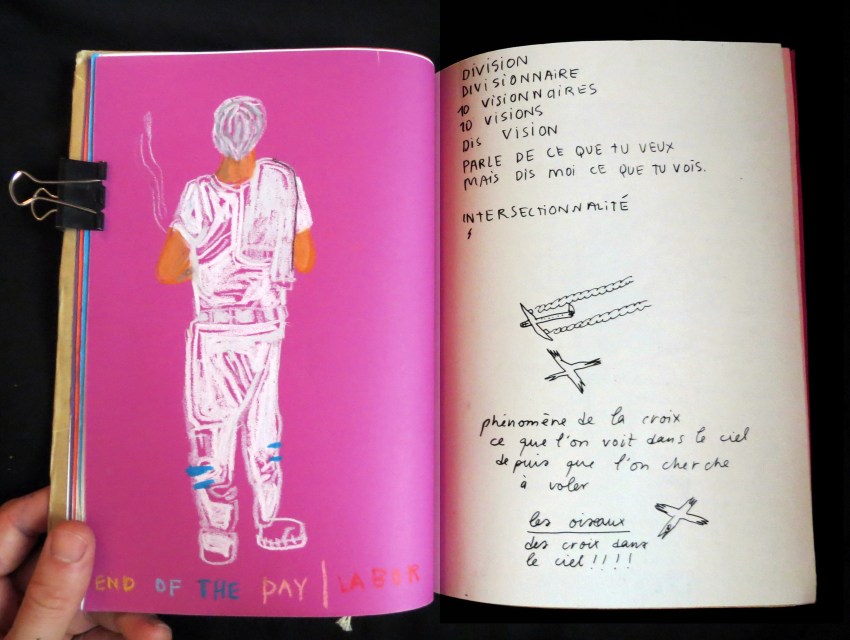 END OF THE DAY | LABOR
DIVISION
DIVISIONNAIRE
10 VISIONNAIRES
10 VISIONS
DIS VISION
PARLE DE CE QUE TU VEUX
MAIS DIS MOI CE QUE TU VOIS.
INTERSECTIONNALITÉ
phénomène de la croix
ce que l'on voit dans le ciel
depuis que l'on cherche
à voler
les oiseaux
des croix dans
le ciel!!!!